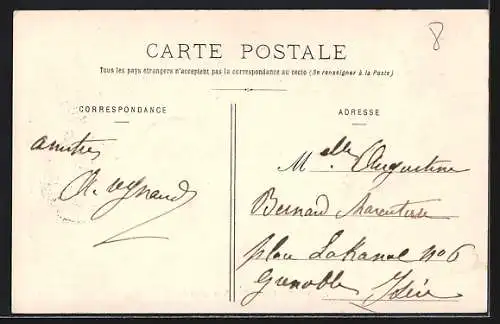 8
CARTE POSTALE
Tous les pays étrangers n'acceptent pas la correspondance au recto (Se renseigner à la Poste)
CORRESPONDANCE
amitiés
A. Reynaud
ADRESSE
Melle Augustine
Bernard
place Lakanal no 6
Grenoble Isère